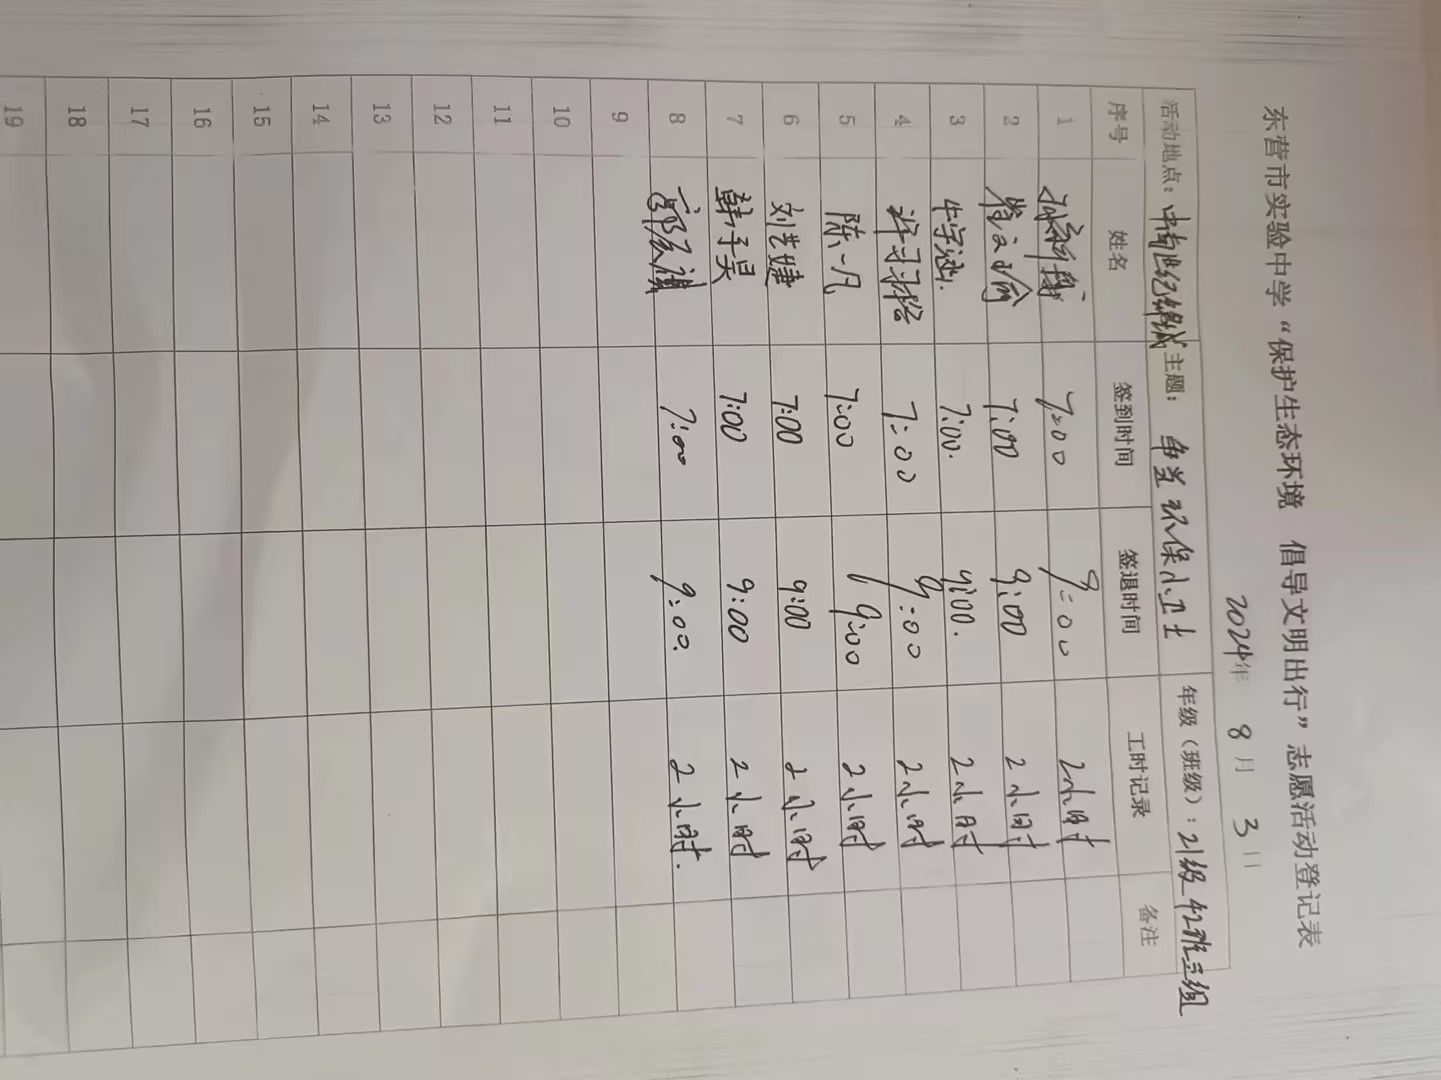 东营市实验中学“保护生态环境 倡导文明出行”志愿活动登记表
2024年 8月 3日
活动地点：中南世纪锦城 主题：争当环保小卫士 年级（班级）：21级42班三组
序号 姓名 签到时间 签退时间 工时记录 备注
1 7:00 9:00 2小时
2 崔文瑜 7:00 9:00 2小时
3 牛宇涵. 7:00. 9:00. 2小时
4 7:00 9:00 2小时
5 陈一凡 7:00 9:00 2小时
6 刘艺婕 7:00 9:00 2小时
7 韩子昊 7:00 9:00 2小时
8 7:00 9:00. 2小时.
9
10
11
12
13
14
15
16
17
18
19